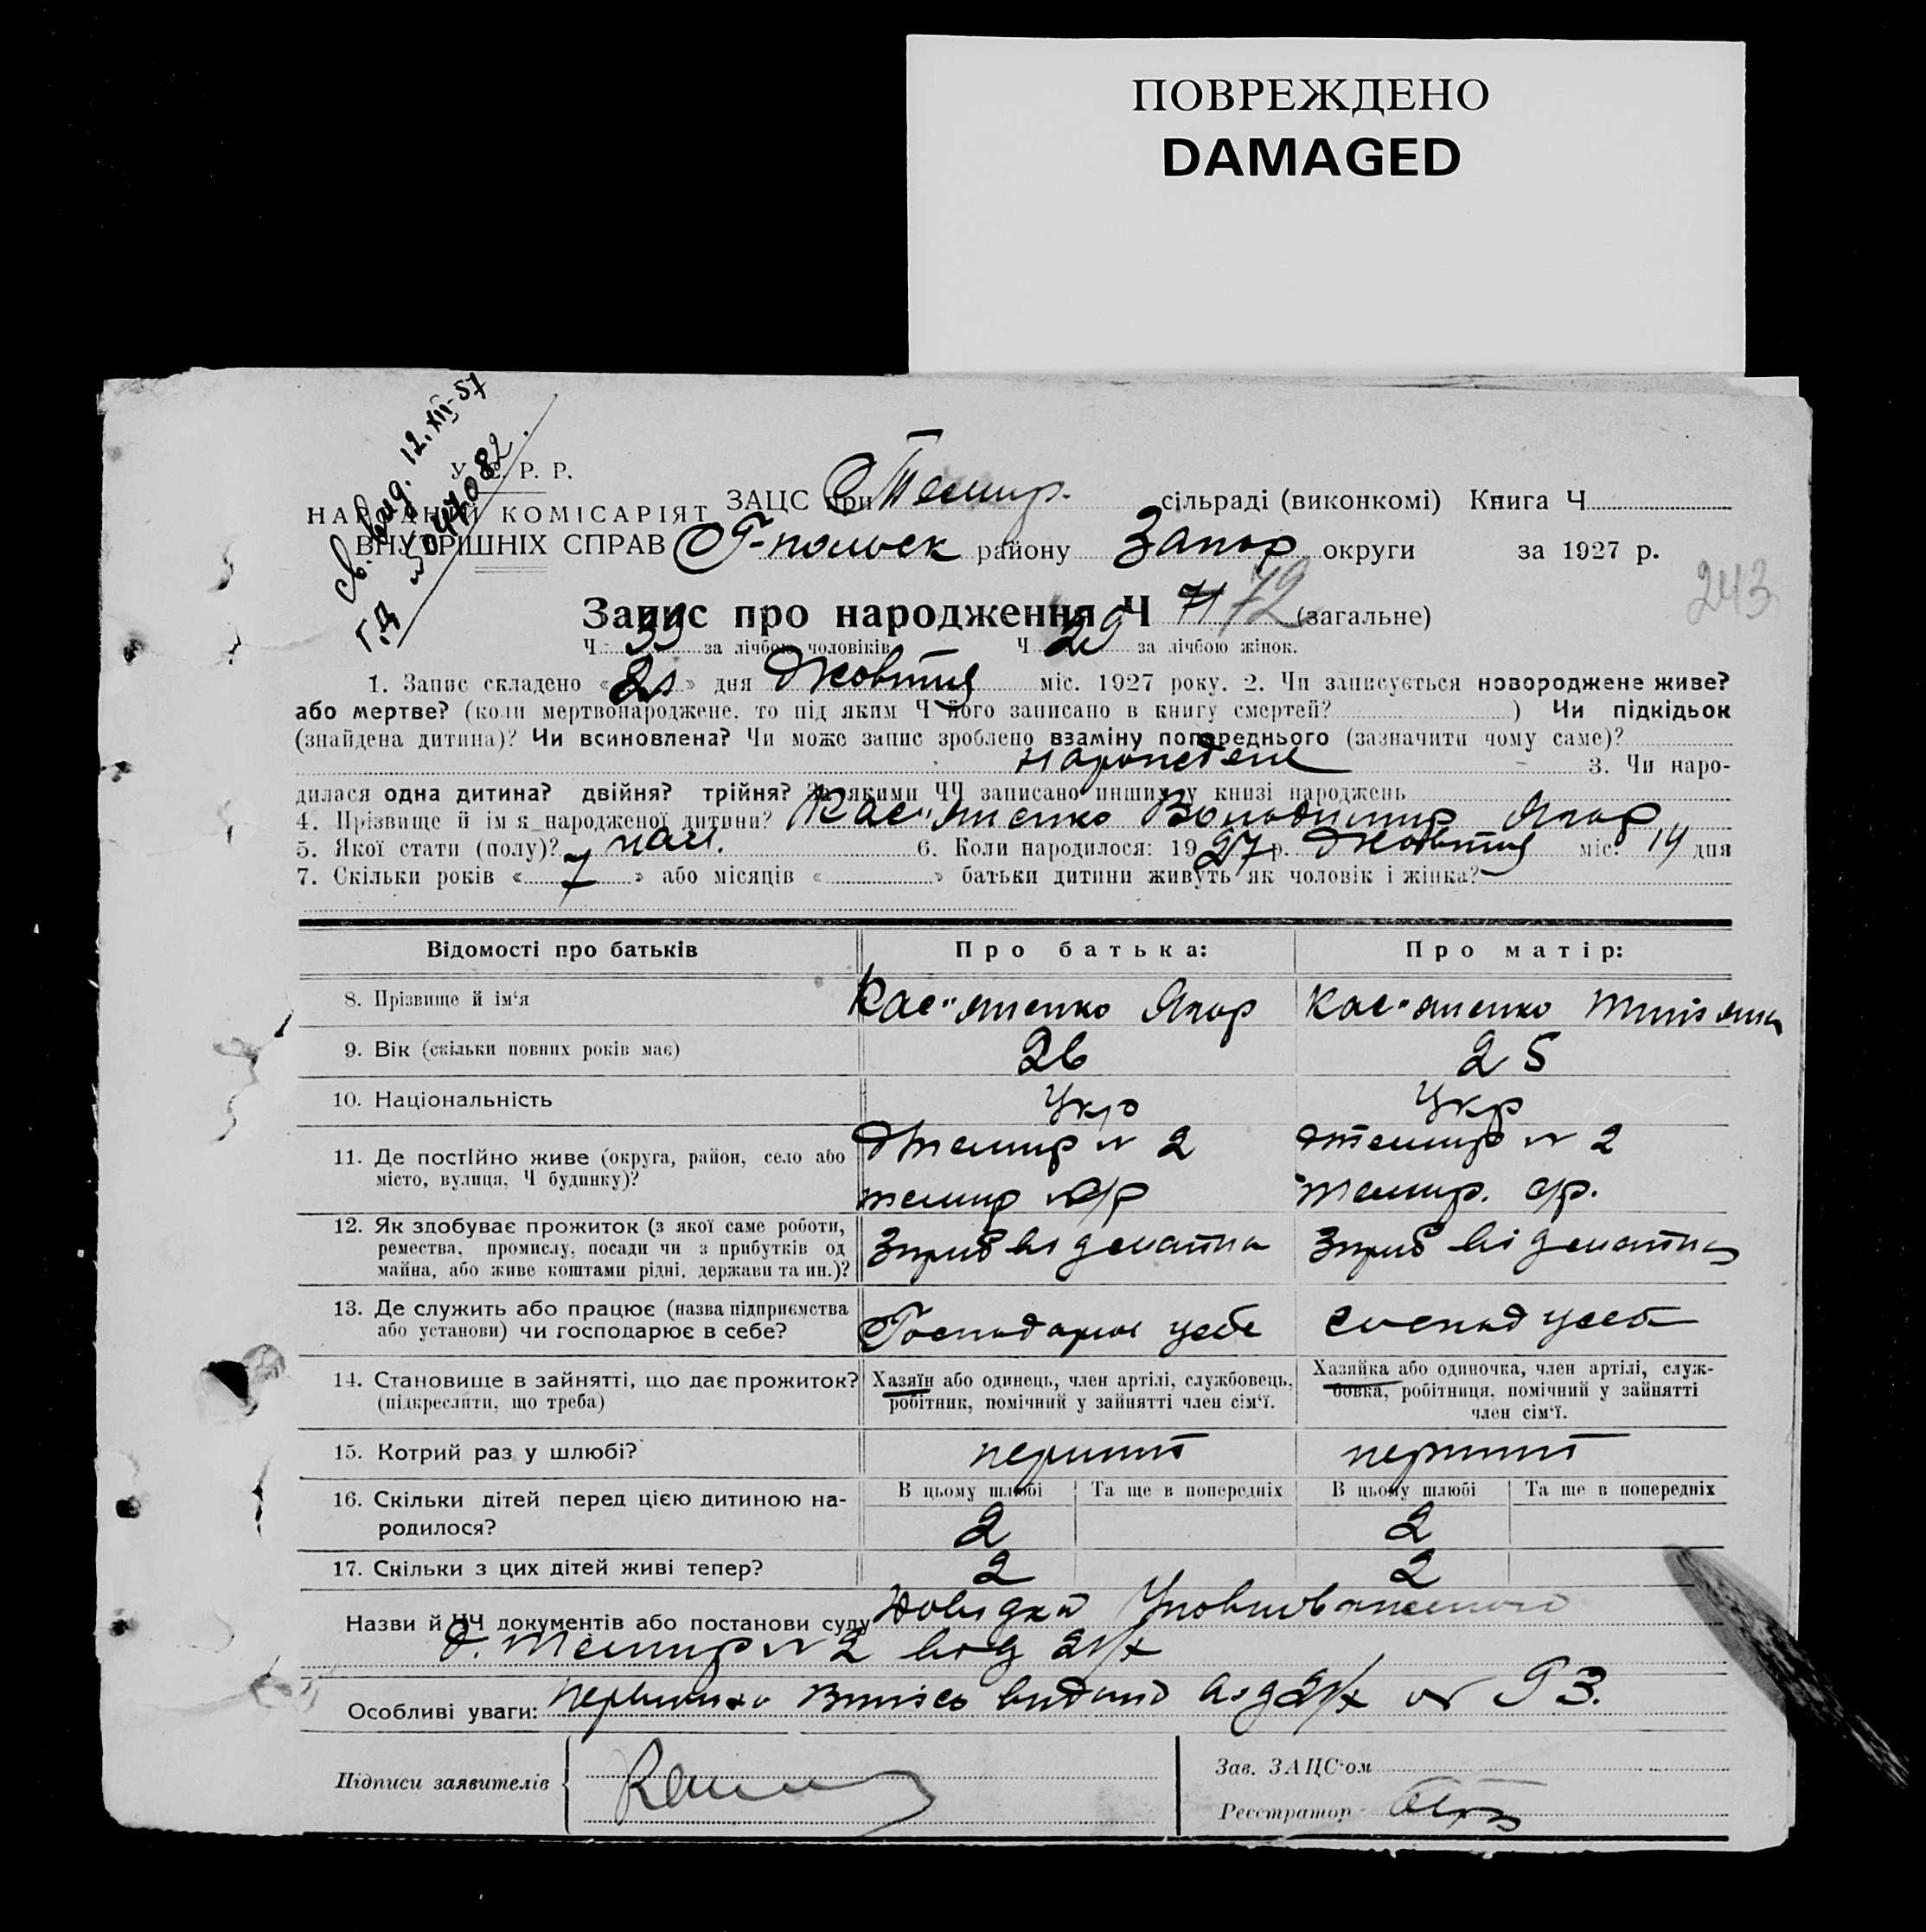 ПОВРЕЖДЕНО
DAMAGED
св. выд. 12.XII-57
У. С. Р. Р.
НАРОДНІЙ КОМІСАРІЯТ
ВНУТРІШНІХ СПРАВ
ЗАЦС при Темир. сільраді (виконкомі) Книга Ч
Г-польськ району Запор округи за 1927 р.
243
Запис про народження Ч 71 72 (загальне)
Ч за лічбою чоловіків Ч 29 за лічбою жінок.
1. Запис складено «21» дня Жовтня міс. 1927 року. 2. Чи записується новороджене живе?
або мертве? (коли мертвонароджене, то під яким Ч його записано в книгу смертей? ) Чи підкідьок
(знайдена дитина)? Чи всиновлена? Чи може запис зроблено взаміну попереднього (зазначити чому саме)?
народжене 3. Чи наро-
дилася одна дитина? двійня? трійня? За якими ЧЧ записано инших у книзі народжень
4. Прізвище й ім'я народженої дитини? Кас"яненко Володимир Ягор
5. Якої стати (полу)? чол. 6. Коли народилося: 1927 р. Жовтня міс. 14 дня
7. Скільки років «7» або місяців « » батьки дитини живуть як чоловік і жінка?
Відомості про батьків Про батька: Про матір:
8. Прізвище й ім‘я Кас"яненко Ягор Кас"яненко
9. Вік (скільки повних років має) 26 25
10. Національність Укр Укр
11. Де постІйно живе (округа, район, село або
місто, вулиця, Ч будинку)?
Темир № 2 Темир № 2
темир с/р темир. с/р.
12. Як здобуває прожиток (з якої саме роботи,
ремества, промислу, посади чи з прибутків од
майна, або живе коштами рідні, держави та ин.)?
13. Де служить або працює (назва підприємства
або установи) чи господарює в себе?
Господарює усебе господ усебе
14. Становище в зайнятті, що дає прожиток?
(підкреслити, що треба)
Хазяїн або одинець, член артілі, службовець,
робітник, помічний у зайнятті член сім‘ї.
Хазяйка або одиночка, член артілі, служ-
бовка, робітниця, помічний у зайнятті
член сім‘ї.
15. Котрий раз у шлюбі? перший перший
16. Скільки дітей перед цією дитиною на-
родилося?
В цьому шлюбі Та ще в попередніх В цьому шлюбі Та ще в попередніх
2 2
17. Скільки з цих дітей живі тепер? 2 2
Назви й ЧЧ документів або постанови суду Довідка Уповноваженого
с. Темир № 2 від 21/X
Особливі уваги: первинна виписъ видана від 21/X № 93.
Підписи заявителів
Зав. ЗАЦС‘ом
Реєстратор